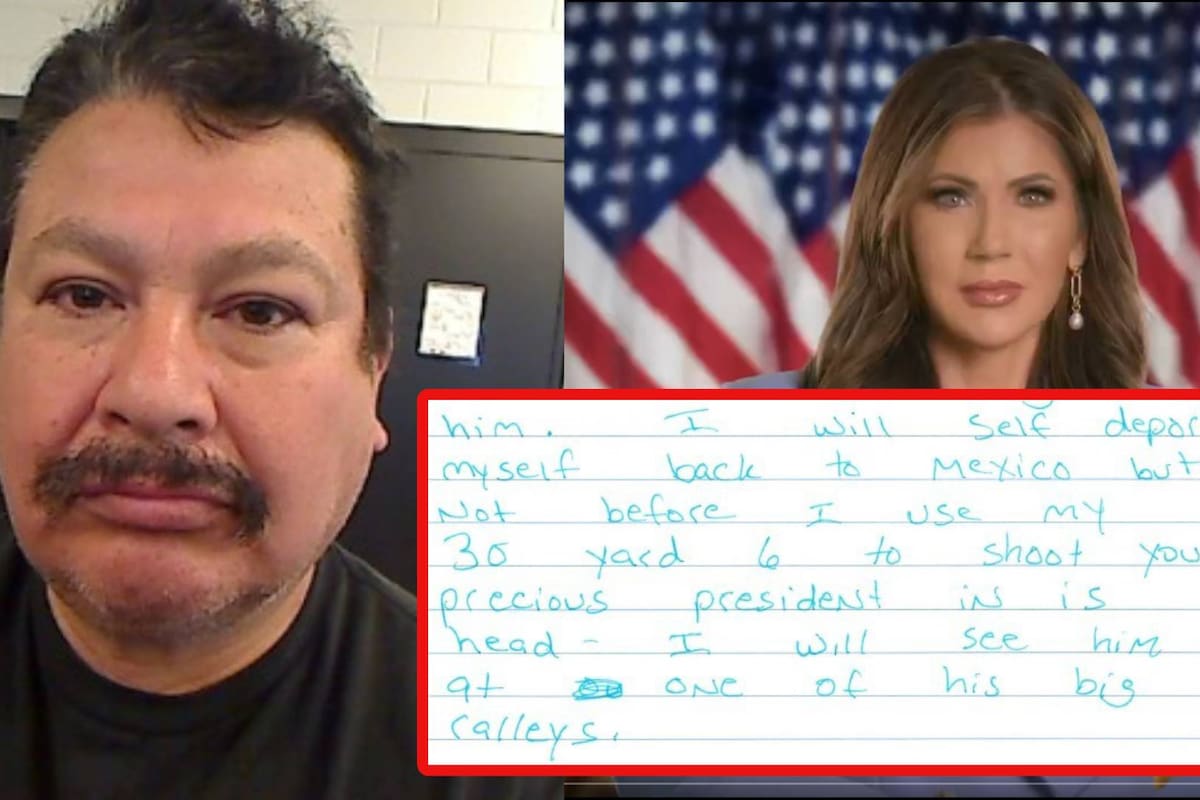 him. I will self depor
myself back to Mexico but
Not before I use my
30 yard 6 to shoot you
precious president in is
head - I will see him
at one of his big
ralleys.